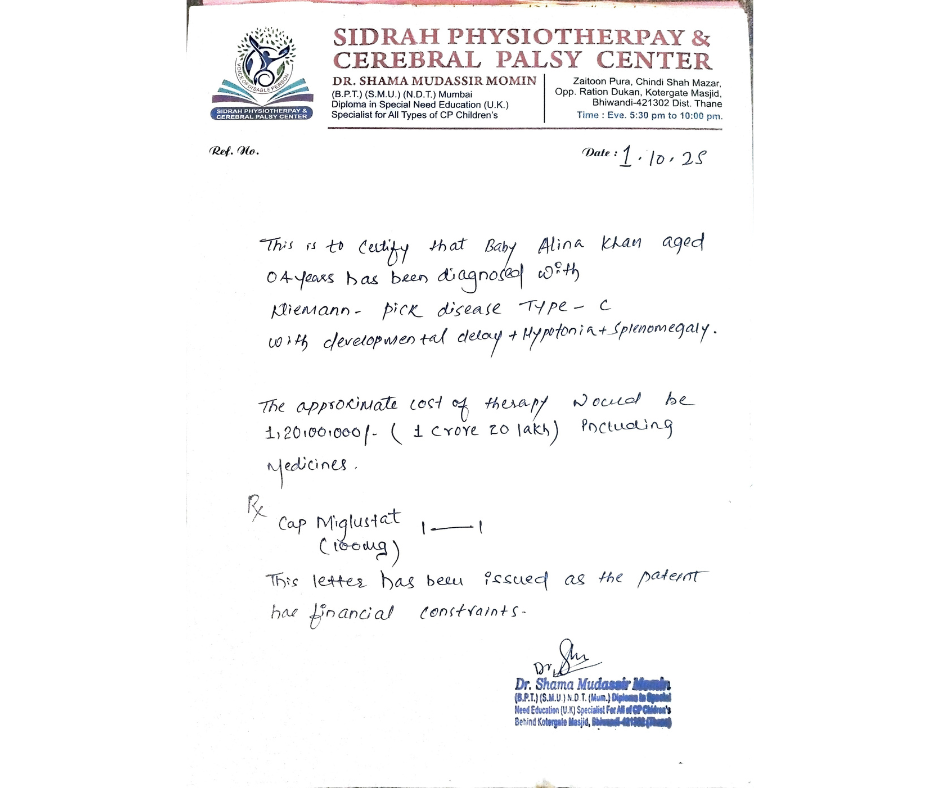 SIDRAH PHYSIOTHERPAY &
CEREBRAL PALSY CENTER
DR. SHAMA MUDASSIR MOMIN
(B.P.T.) (S.M.U.) (N.D.T.) Mumbai
Diploma in Special Need Education (U.K.)
Specialist for All Types of CP Children's
Zaitoon Pura, Chindi Shah Mazar,
Opp. Ration Dukan, Kotergate Masjid,
Bhiwandi-421302 Dist. Thane
Time : Eve. 5:30 pm to 10:00 pm.
SIDRAH PHYSIOTHERPAY &
CEREBRAL PALSY CENTER
Ref. No.
Date : 1.10.25
This is to Certify that Baby Alina Khan aged
04 years has been diagnosed with
Niemann- Pick disease TYPE - C
with developmental delay + Hypotonia + Splenomegaly.
The approximate cost of therapy would be
1,20,00,000/- ( 1 crore 20 lakh) Including
Medicines.
Rx
Cap Miglustat 1—1
(100mg)
This letter has been issued as the patent
has financial constraints.
Dr.
Dr. Shama Mudassir Momin
(B.P.T.) (S.M.U.) N.D.T. (Mum.) Diploma in Special
Need Education (U.K) Specialist For All of CP Children's
Behind Kotergate Masjid, Bhiwandi-421302 (Thane)